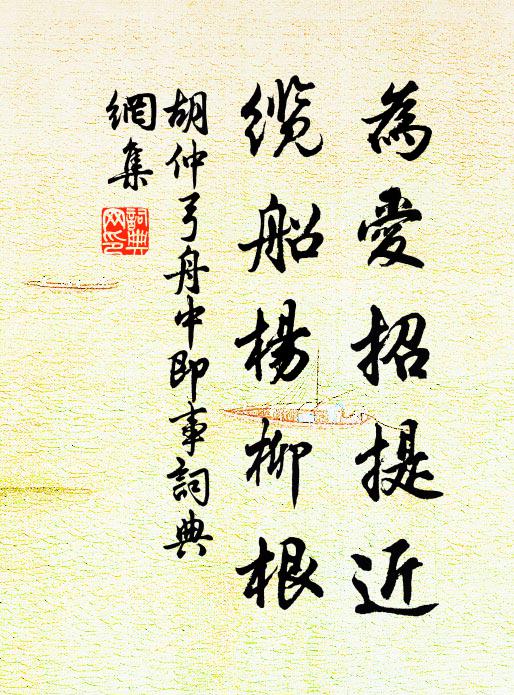 為愛招提近
纜船楊柳根
胡仲弓舟中即事詞典
網集
詞典
网印